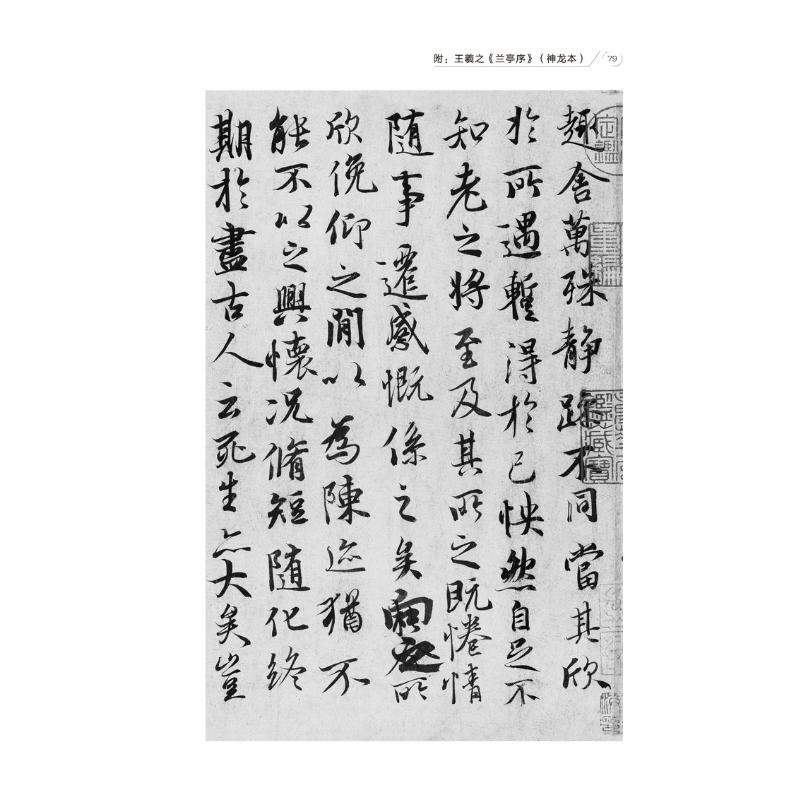 附：王羲之《兰亭序》（神龙本） 79
趣舍萬殊静躁不同當其欣
於所遇蹔得於己怏然自足不
知老之將至及其所之既惓情
隨事遷感慨係之矣向之所
欣俛仰之閒以為陳迹猶不
能不以之興懷況脩短隨化終
期於盡古人云死生亦大矣豈